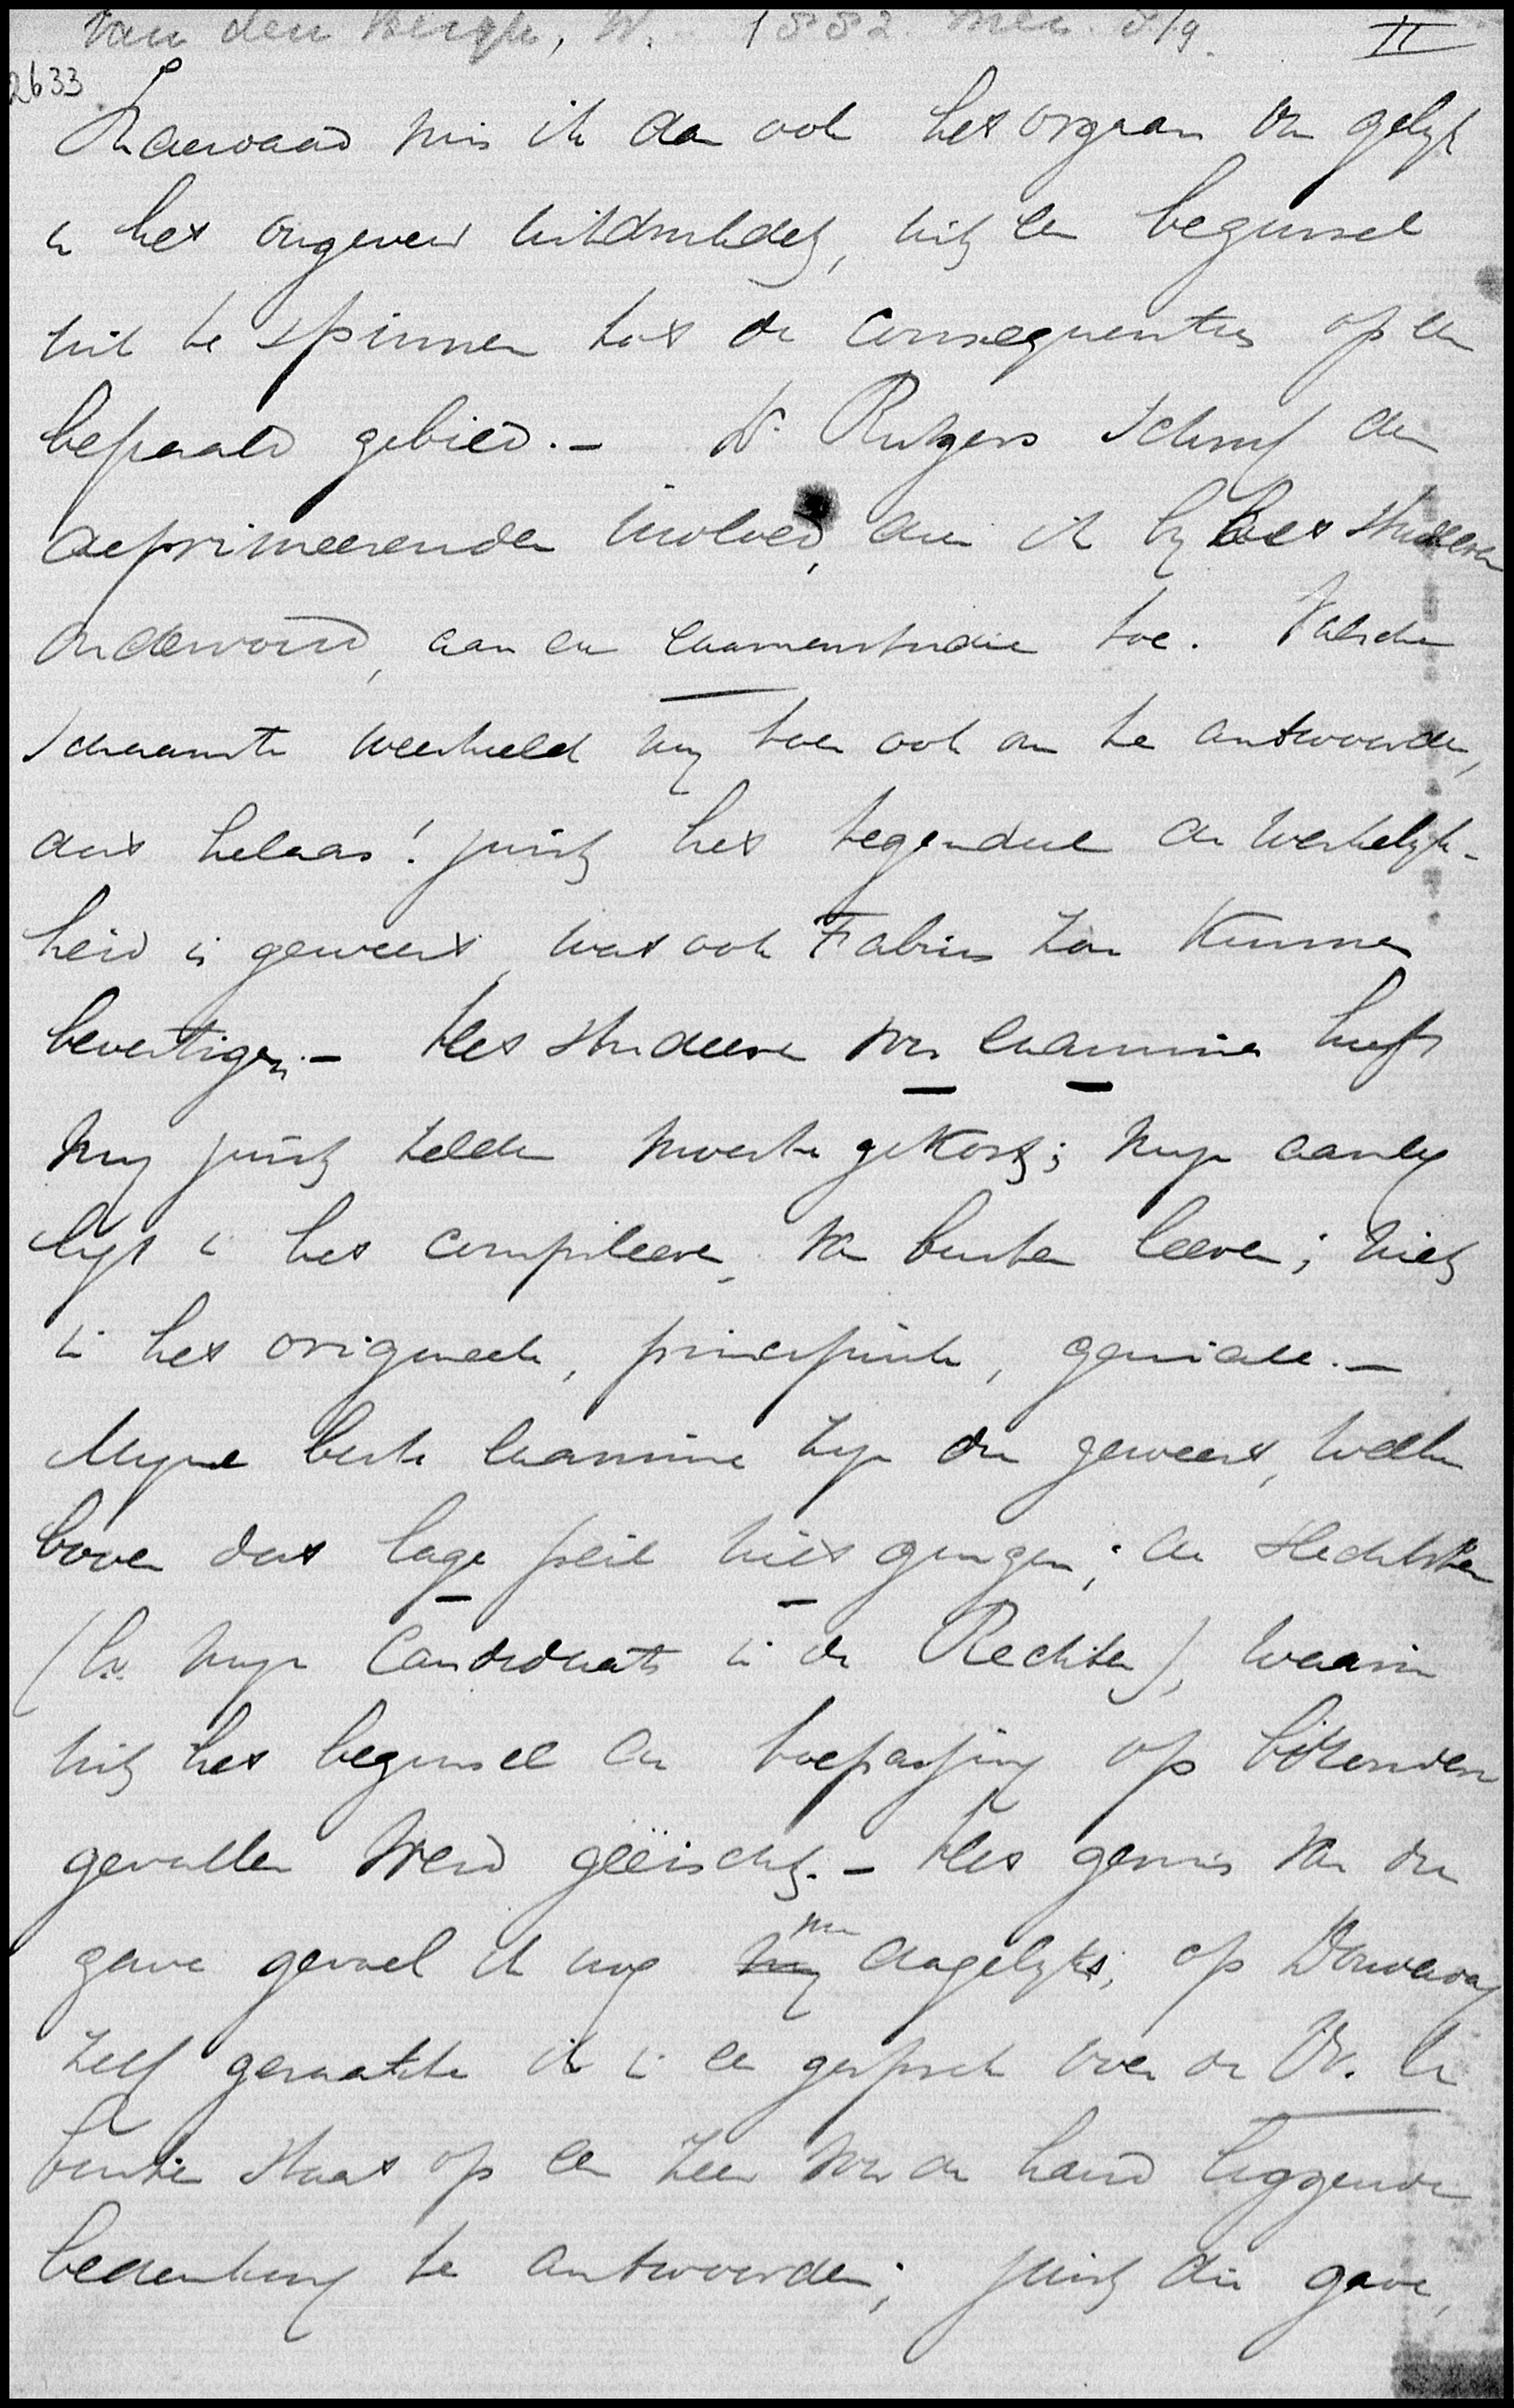 van den Bergh, W. 1882 8/9. II
2633
mis ik dan ook het orgaan om gelijk
in het ongeveer uitdrukdet, uit een beginsel
uit te spinnen tot de consequenties op een
bepaald gebied. - Dr. Rutgers schreef den
deprimeerenden invloed, dien ik bij het studeeren
ondervond, aan en examenstudie toe. Valsche
schaamte weerhield mij toen ook om te antwoorden,
dat helaas! juist het tegendeel de werkelijk-
heid is geweest, wat ook Fabius zou kunnen
bevestigen. - Het studeeren voor examina heeft
mij juist zelden moeite gekost; mijn aanleg
ligt in het compileeren, van buiten leeren; niet
in het origineele, principieele, geniale. -
Mijne beste examina zijn die geweest, welke
boven dat lage peil niet gingen; de slechtsten
(b.v. mijn Candidaats in de Rechten), waarin
uit het beginsel de toepassing op bijzondere
gevallen werd geëischt. - Het gemis van die
gave gevoel ik nog nu dagelijks; op Donderdag
zelf geraakte ik in een gesprek over de Vr. Un.
buiten staat op een zeer voor de hand liggende
bedenking te antwoorden; juist die gave,